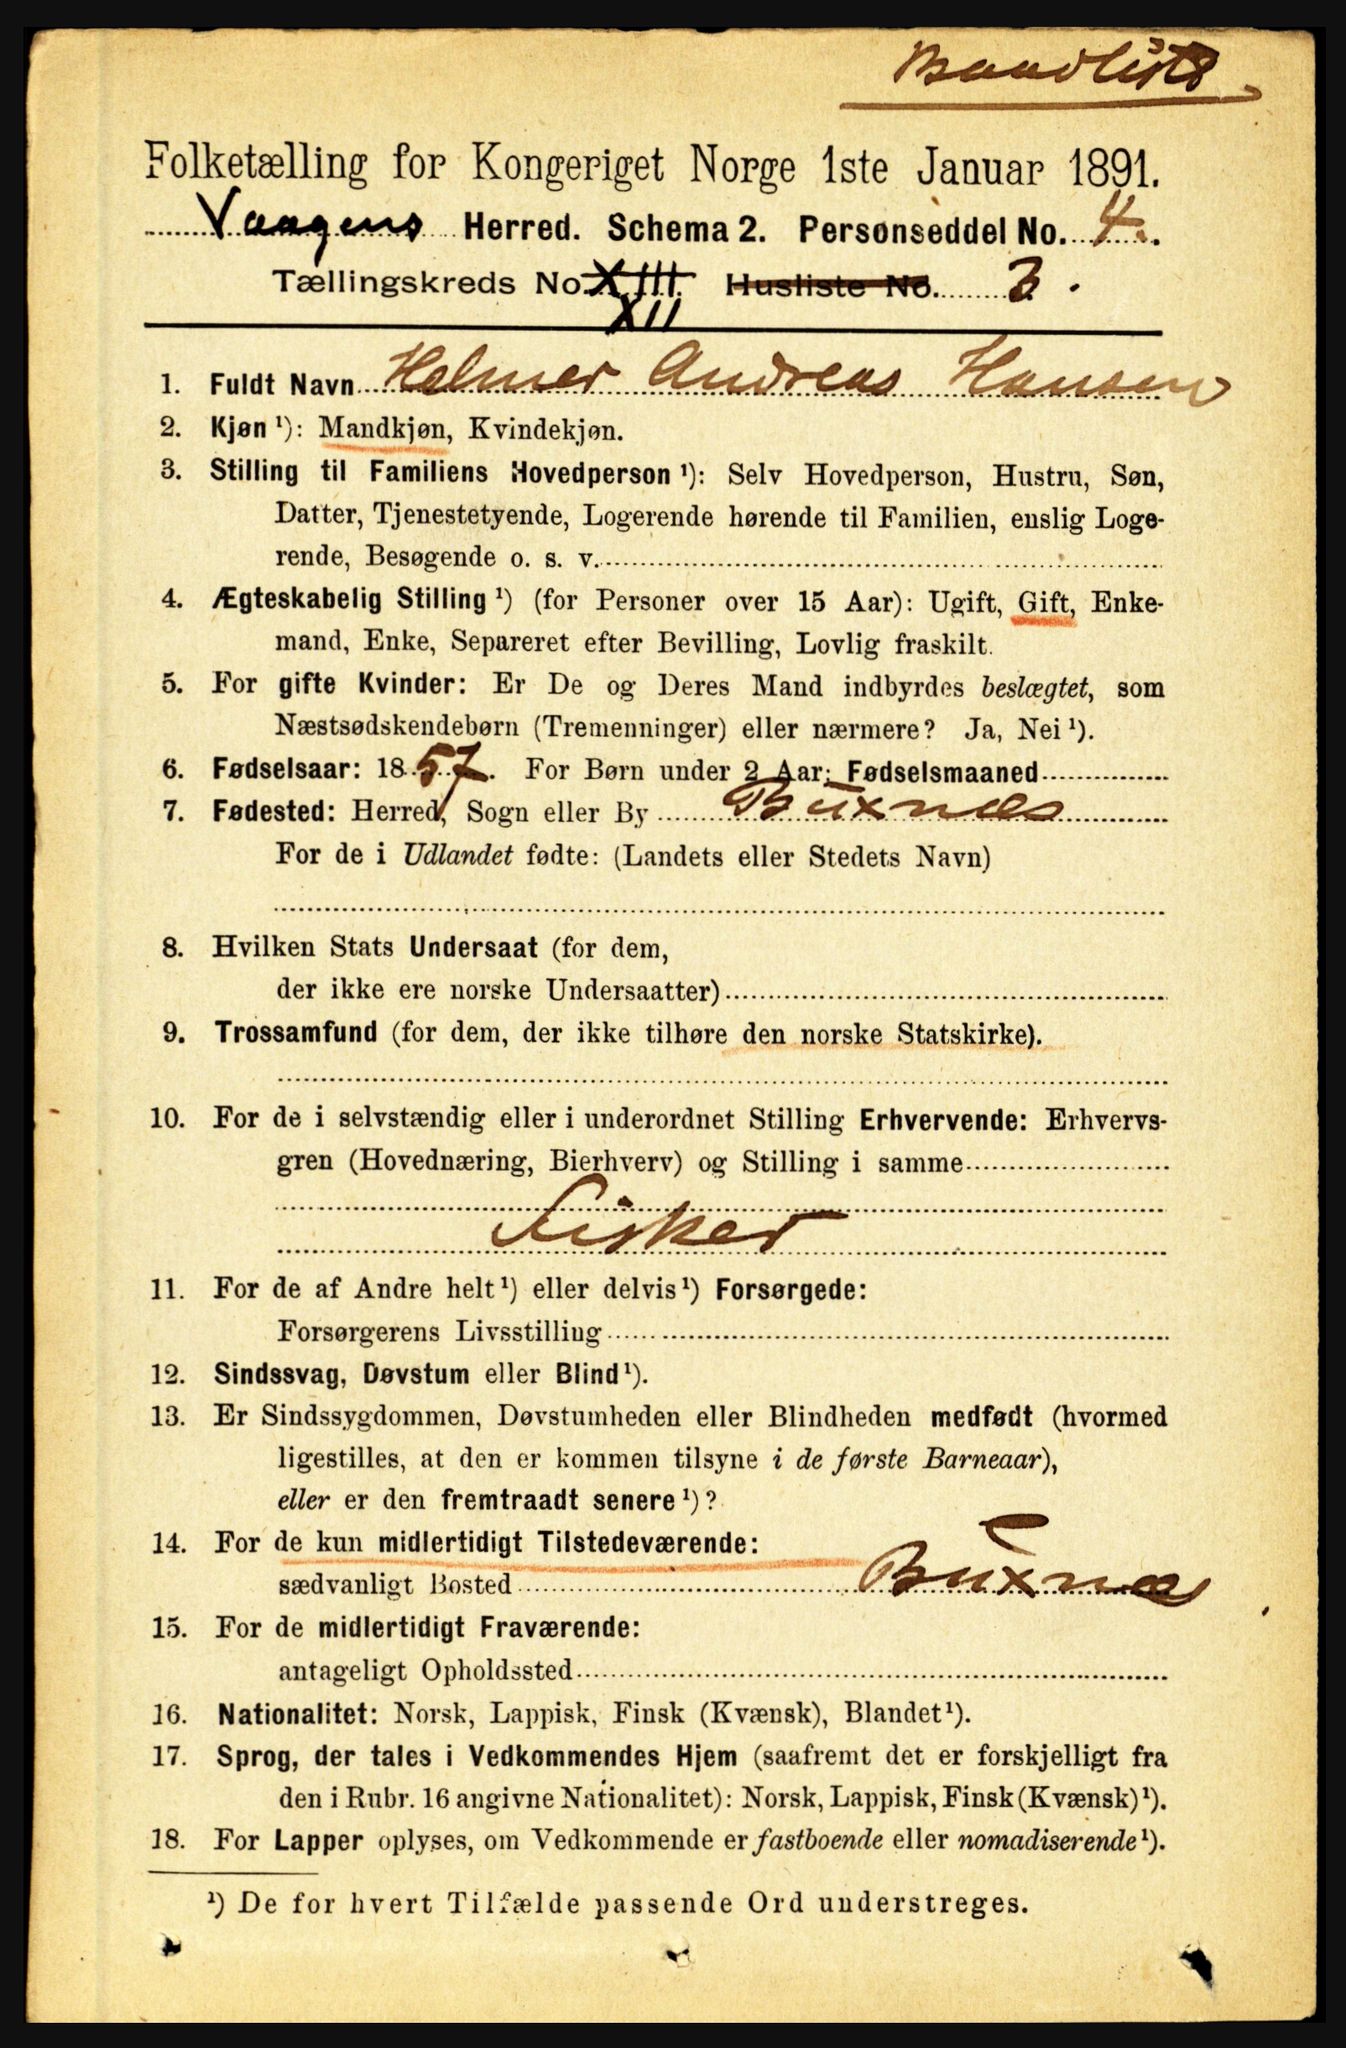 Baadliste
Folketælling for Kongeriget Norge 1ste Januar 1891.
Vaagens Herred. Schema 2. Personseddel No. 4.
Tællingskreds No. XIII Husliste No. 3.
XII
1. Fuldt Navn Helmer Andreas Hansen
2. Kjøn ¹): Mandkjøn, Kvindekjøn.
3. Stilling til Familiens Hovedperson ¹): Selv Hovedperson, Hustru, Søn,
Datter, Tjenestetyende, Logerende hørende til Familien, enslig Loge-
rende, Besøgende o. s. v.
4. Ægteskabelig Stilling ¹) (for Personer over 15 Aar): Ugift, Gift, Enke-
mand, Enke, Separeret efter Bevilling, Lovlig fraskilt.
5. For gifte Kvinder: Er De og Deres Mand indbyrdes beslægtet, som
Næstsødskendebørn (Tremenninger) eller nærmere? Ja, Nei ¹).
6. Fødselsaar: 1857. For Børn under 2 Aar: Fødselsmaaned
7. Fødested: Herred, Sogn eller By Buxnæs
For de i Udlandet fødte: (Landets eller Stedets Navn)
8. Hvilken Stats Undersaat (for dem,
der ikke ere norske Undersaatter)
9. Trossamfund (for dem, der ikke tilhøre den norske Statskirke).
10. For de i selvstændig eller i underordnet Stilling Erhvervende: Erhvervs-
gren (Hovednæring, Bierhverv) og Stilling i samme
Fisker
11. For de af Andre helt ¹) eller delvis ¹) Forsørgede:
Forsørgerens Livsstilling
12. Sindssvag, Døvstum eller Blind ¹).
13. Er Sindssygdommen, Døvstumheden eller Blindheden medfødt (hvormed
ligestilles, at den er kommen tilsyne i de første Barneaar),
eller er den fremtraadt senere ¹)?
14. For de kun midlertidigt Tilstedeværende:
sædvanligt Bosted Buxnæs
15. For de midlertidigt Fraværende:
antageligt Opholdssted
16. Nationalitet: Norsk, Lappisk, Finsk (Kvænsk), Blandet ¹).
17. Sprog, der tales i Vedkommendes Hjem (saafremt det er forskjelligt fra
den i Rubr. 16 angivne Nationalitet): Norsk, Lappisk, Finsk (Kvænsk) ¹).
18. For Lapper oplyses, om Vedkommende er fastboende eller nomadiserende ¹).
¹) De for hvert Tilfælde passende Ord understreges.